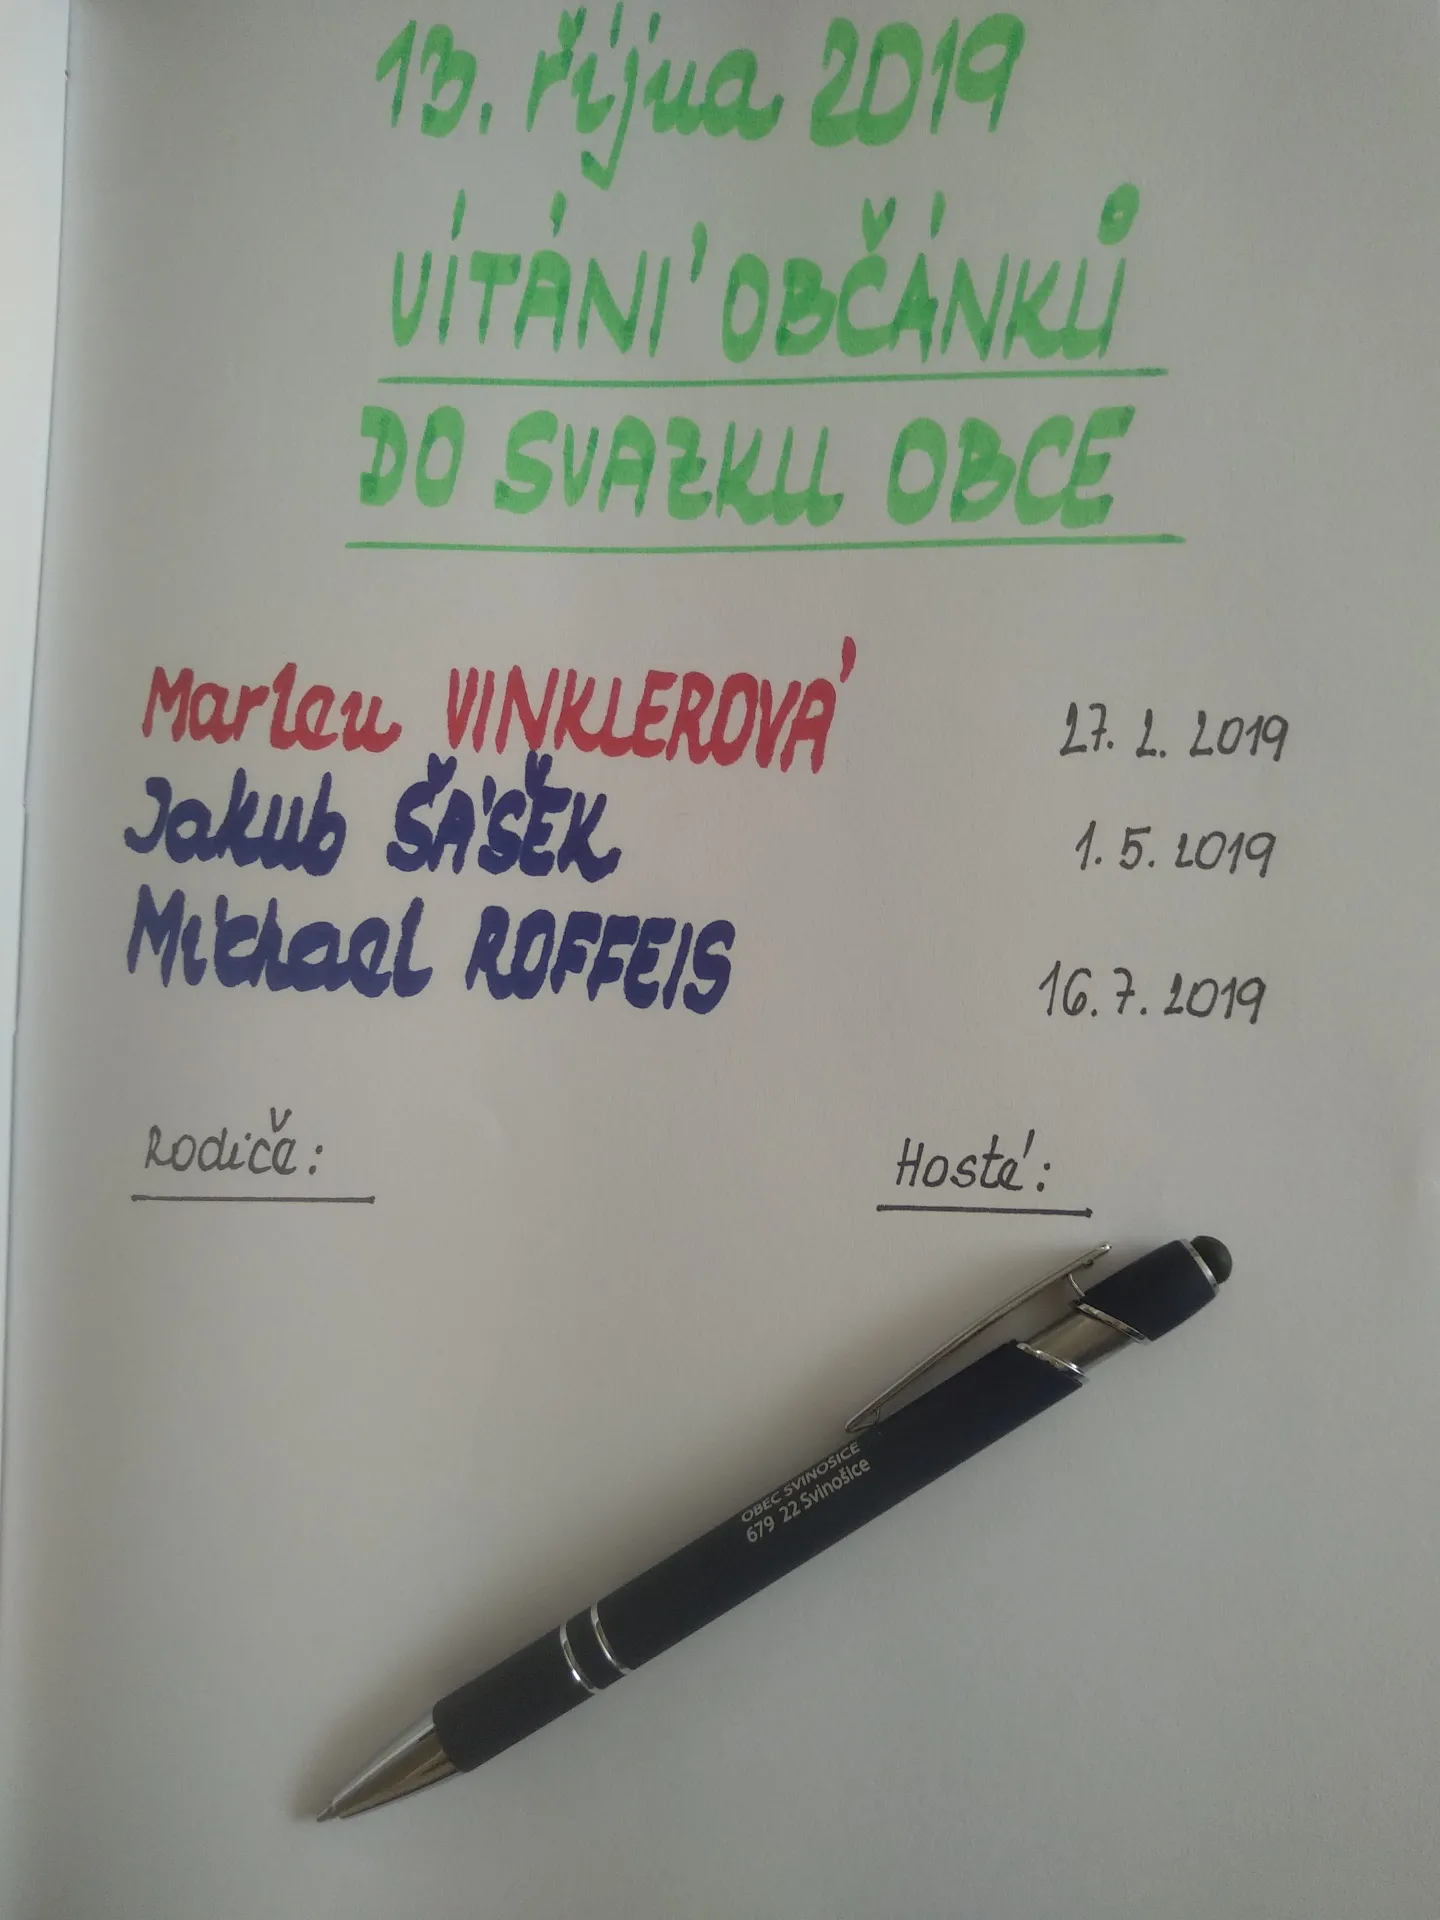 13. října 2019
VÍTÁNÍ OBČÁNKŮ
DO SVAZKU OBCE
Marlen VINKLEROVÁ 27. 2. 2019
Jakub ŠÁŠEK 1. 5. 2019
Michael ROFFEIS 16. 7. 2019
Rodiče: Hosté:
OBEC SVINOŠICE
679 22 Svinošice